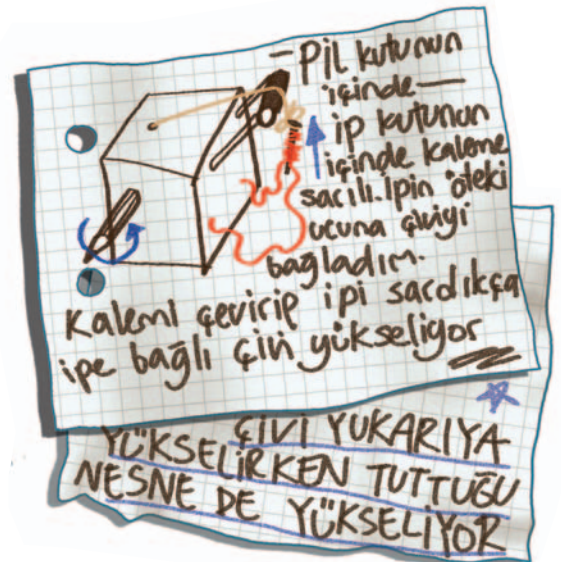 - PİL kutunun
içinde —
ip kutunun
içinde kaleme
sarılı. İpin öteki
ucuna çiviyi
bağladım.
Kalemi çevirip ipi sardıkça
ipe bağlı çivi yükseliyor
ÇİVİ YUKARIYA
YÜKSELİRKEN TUTTUĞU
NESNE DE YÜKSELİYOR